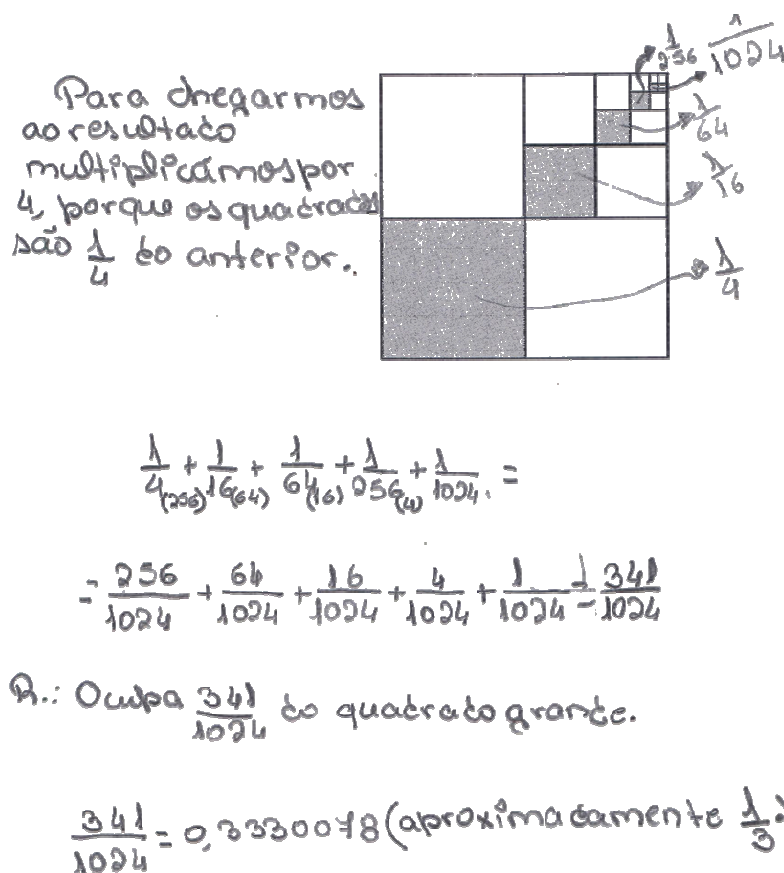 Para chegarmos
ao resultado
multiplicámos por
4, porque os quadrados
são 1/4 do anterior.
1/256 1/1024
1/64
1/16
1/4
1/4(256) + 1/16(64) + 1/64(16) + 1/256(4) + 1/1024 =
= 256/1024 + 64/1024 + 16/1024 + 4/1024 + 1/1024 = 341/1024
R.: Ocupa 341/1024 do quadrado grande.
341/1024 = 0,3330078 (aproximadamente 1/3)